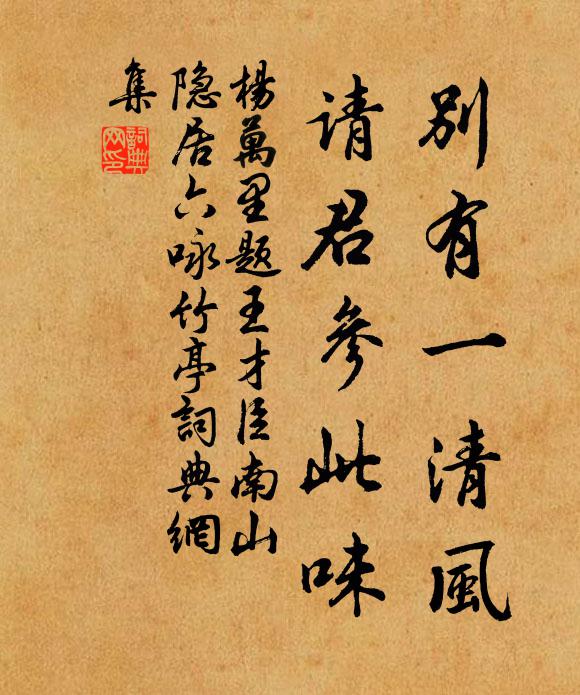 别有一清風
请君參此味
楊萬里題王才臣南山
隐居六咏竹亭詞典網
集
詞典网印